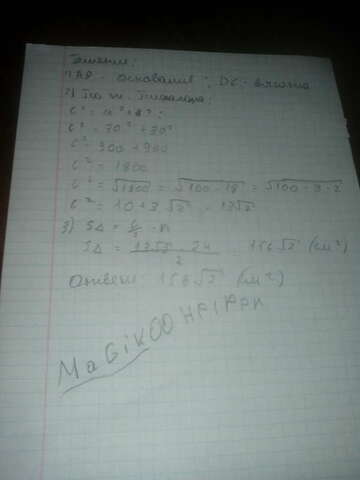 Решение:
1) АВ - основание; DC - высота
2) По т. Пифагора:
c² = a² + b²;
c² = 30² + 30²
c² = 900 + 900
c² = 1800
c² = √1800 = √100 · 18 = √100 · 9 · 2
c² = 10 + 3√2 = 13√2
3) S∆ = c/2 · h
S∆ = 13√2 · 24 / 2 = 156√2 (см²)
Ответ: 156√2 (см²)
MaGiKOO